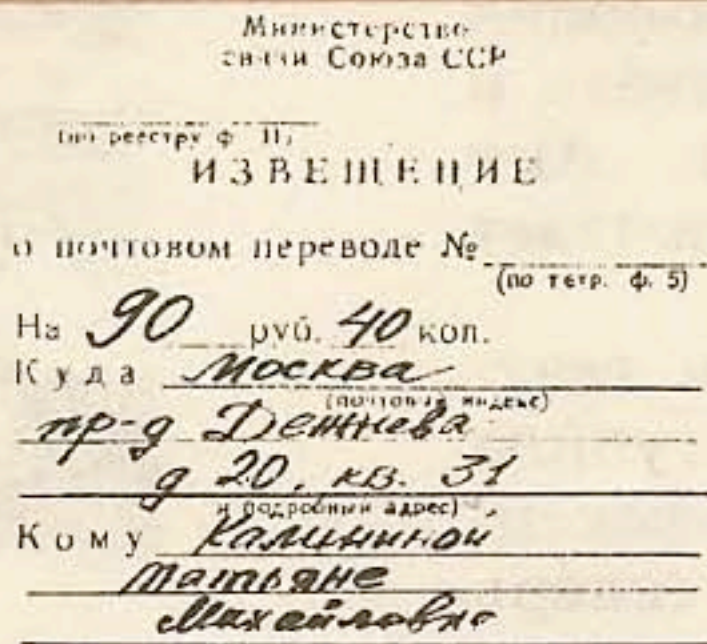 Министерство
связи Союза ССР
(по реестру ф. 11)
ИЗВЕЩЕНИЕ
о почтовом переводе №
(по тетр. ф. 5)
На 90 руб. 40 коп.
Куда Москва
(почтовый индекс)
пр-д Дежнева
д 20, кв. 31
и подробный адрес)
Кому Калининой
Татьяне
Михайловне